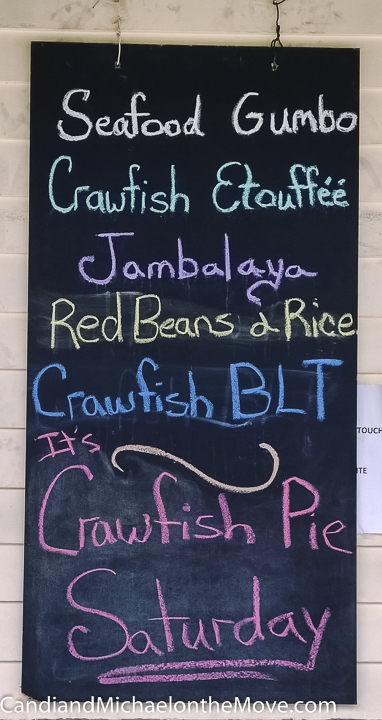 Seafood Gumbo
Crawfish Etouffëë
Jambalaya
Red Beans & Rice
Crawfish BLT
It's
Crawfish Pie
Saturday
TOUCH
ITE
CandiandMichaelontheMove.com